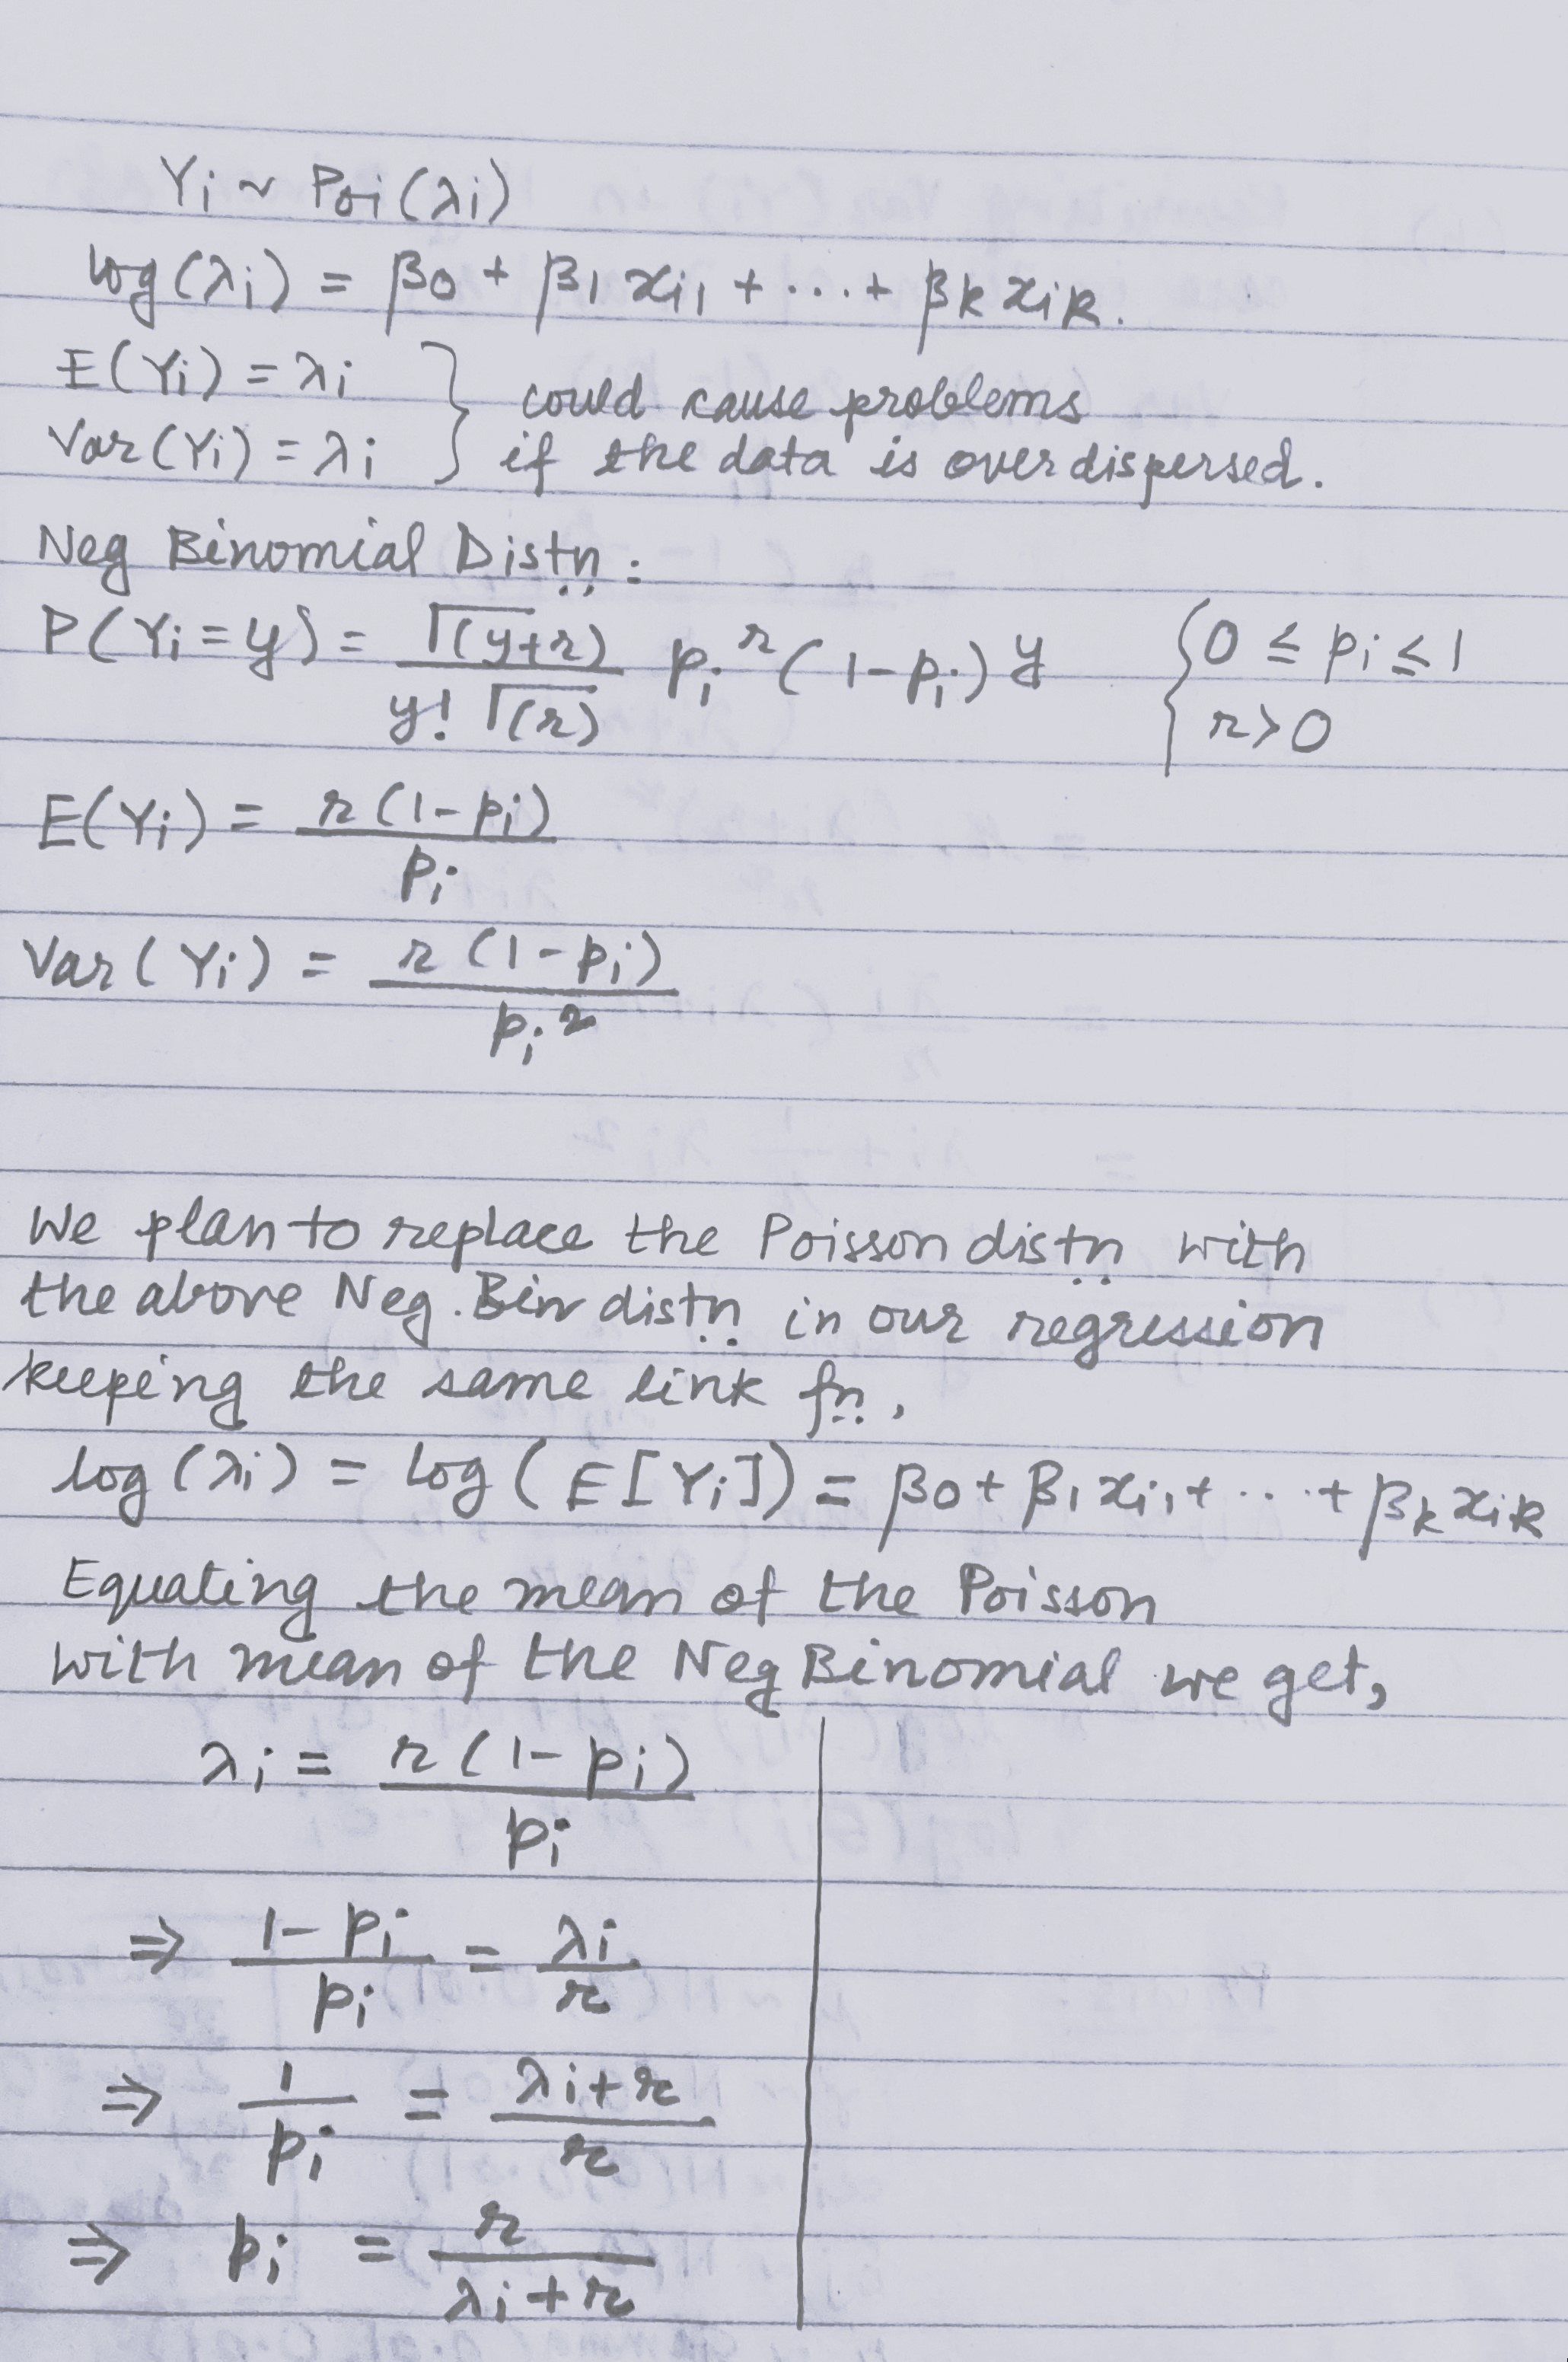 Yi ~ Poi(λi)
log(λi) = β0 + β1 xi1 + ... + βk xik.
E(Yi) = λi } could cause problems
Var(Yi) = λi } if the data is overdispersed.
Neg Binomial Distn :
P(Yi = y) = Γ(y+r) / y! Γ(r) pi^r (1-pi)^y { 0 ≤ pi ≤ 1
r > 0
E(Yi) = r(1-pi) / pi
Var(Yi) = r(1-pi) / pi^2
We plan to replace the Poisson distn with
the above Neg. Bin distn in our regression
keeping the same link fn,
log(λi) = log(E[Yi]) = β0 + β1 xi1 + ... + βk xik
Equating the mean of the Poisson
with mean of the Neg Binomial we get,
λi = r(1-pi) / pi
⇒ 1-pi / pi = λi / r
⇒ 1 / pi = λi+r / r
⇒ pi = r / λi+r